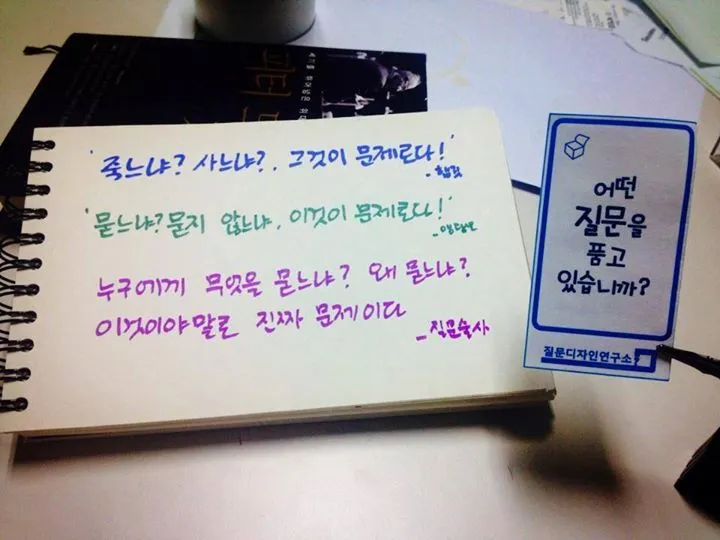 '죽느냐? 사느냐?, 그것이 문제로다!'
- 햄릿
'묻느냐? 묻지 않느냐, 이것이 문제로다!'
누구에게 무엇을 묻느냐? 왜 묻느냐?
이것이야말로 진짜 문제이다
- 질문술사
어떤
질문을
품고
있습니까?
질문디자인연구소